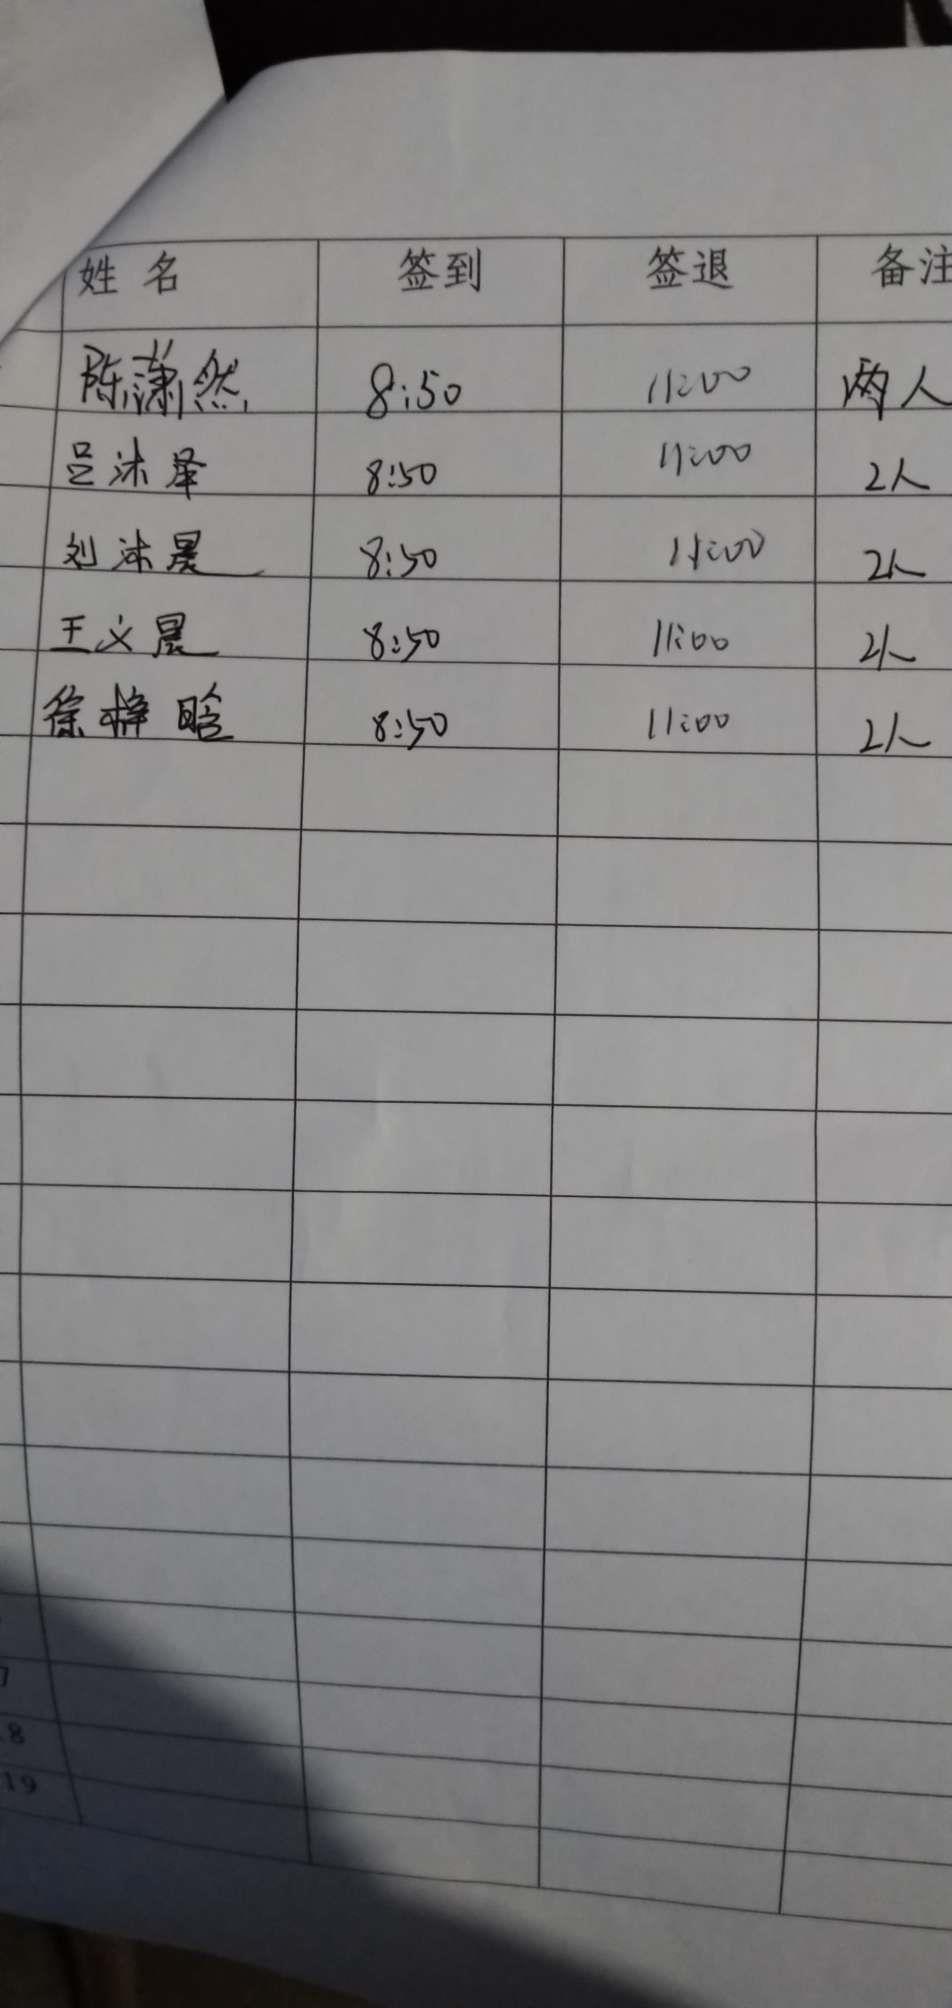 姓名 签到 签退 备注
陈潇然 8:50 11:00 两人
吕沐泽 8:50 11:00 2人
刘沐晨 8:50 11:00 2人
王义晨 8:50 11:00 2人
徐梓晗 8:50 11:00 2人
7
18
19